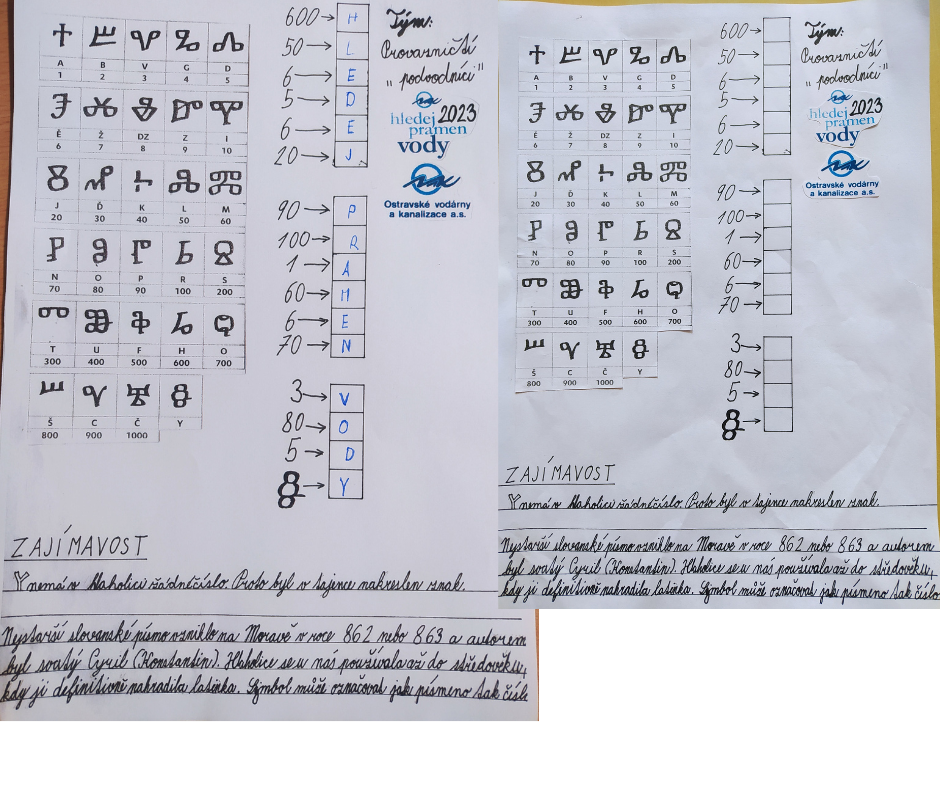 A B V G D
1 2 3 4 5
É Ž DZ Z I
6 7 8 9 10
J Ď K L M
20 30 40 50 60
N O P R S
70 80 90 100 200
T U F H O
300 400 500 600 700
Š C Č Y
800 900 1000
600→ H
50→ L
6→ E
5→ D
6→ E
20→ J
90→ P
100→ R
1→ A
60→ M
6→ E
70→ N
3→ V
80→ O
5→ D
→ Y
Tým:
Provazničtí
„podvodníci"
2023
hledej
pramen
vody
Ostravské vodárny
a kanalizace a.s.
ZAJÍMAVOST
Y nemá v hlaholici žádné číslo. Proto byl v tajence nakreslen znak.
Nejstarší slovanské písmo vzniklo na Moravě v roce 862 nebo 863 a autorem
byl svatý Cyril (Konstantin). Hlaholice se u nás používala až do středověku,
kdy ji definitivně nahradila latinka. Symbol může označovat jak písmeno tak čísl
A B V G D
1 2 3 4 5
É Ž DZ Z I
6 7 8 9 10
J Ď K L M
20 30 40 50 60
N O P R S
70 80 90 100 200
T U F H O
300 400 500 600 700
Š C Č Y
800 900 1000
600→
50→
6→
5→
6→
20→
90→
100→
1→
60→
6→
70→
3→
80→
5→
→
Tým:
Provazničtí
„podvodníci"
2023
hledej
pramen
vody
Ostravské vodárny
a kanalizace a.s.
ZAJÍMAVOST
Y nemá v hlaholici žádné číslo. Proto byl v tajence nakreslen znak.
Nejstarší slovanské písmo vzniklo na Moravě v roce 862 nebo 863 a autorem
byl svatý Cyril (Konstantin). Hlaholice se u nás používala až do středověku,
kdy ji definitivně nahradila latinka. Symbol může označovat jak písmeno tak číslo